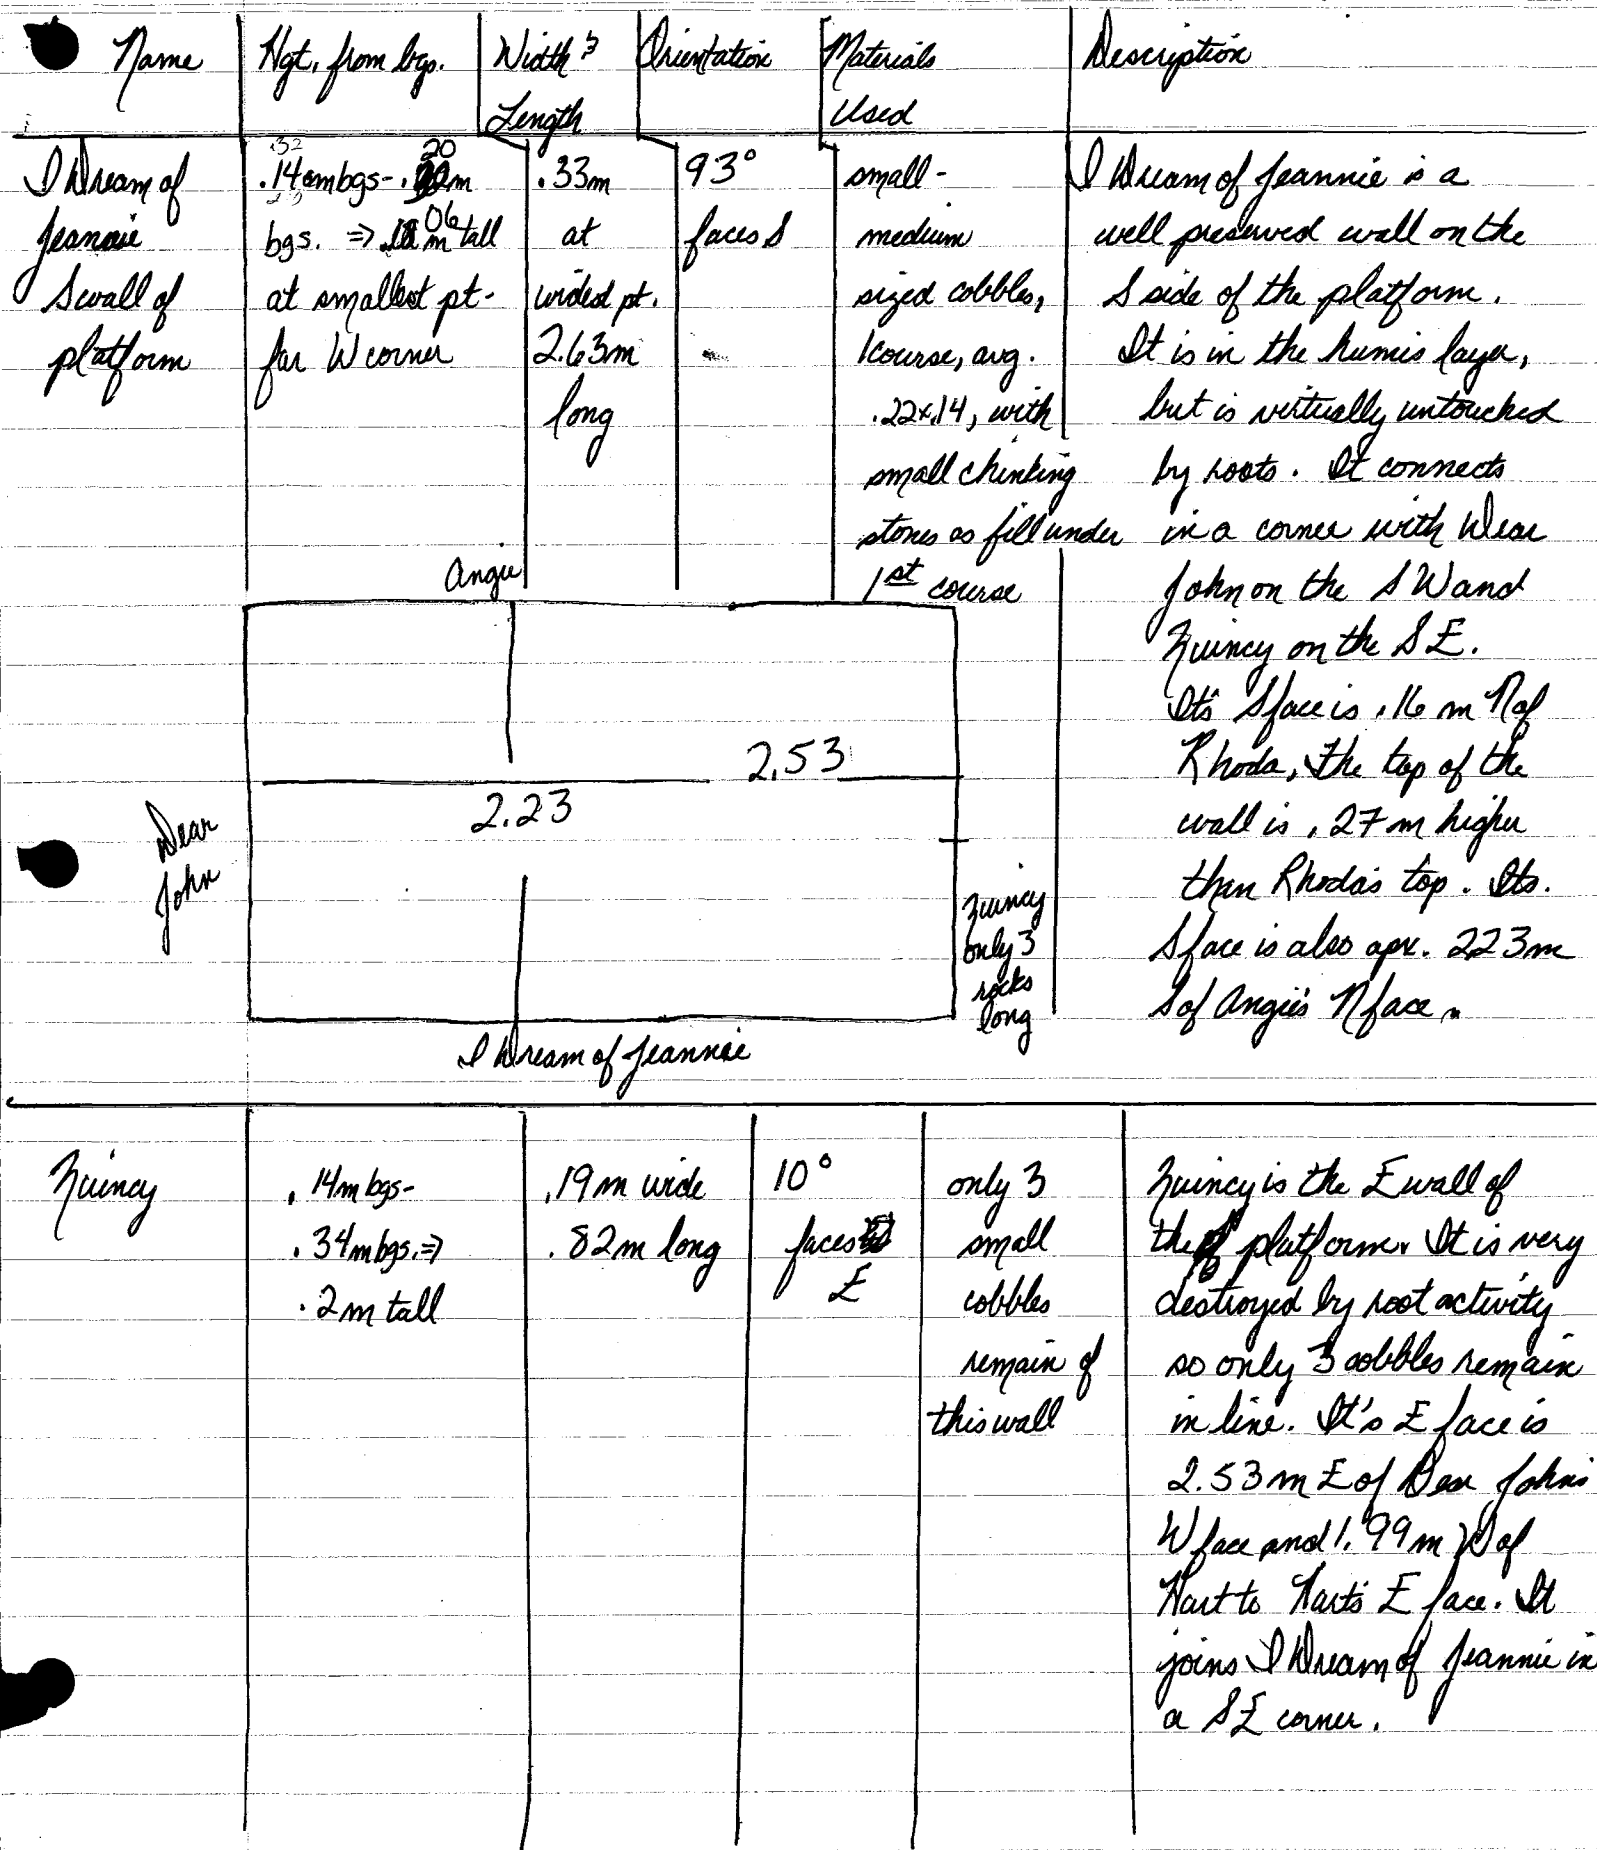 Name
Hgt. from bgs.
Width &
Length
Orientation
Materials
Used
Description
I Dream of
Jeannie
S wall of
platform
.32
20
.14 m bgs - . m
06
bgs. ⇒ . m tall
at smallest pt -
far W corner
.33m
at
widest pt.
2.63m
long
93°
faces S
small -
medium
sized cobbles,
1 course, avg.
.22x.14, with
small chinking
stones as fill under
1st course
I Dream of Jeannie is a
well preserved wall on the
S side of the platform.
It is in the humis layer,
but is virtually untouched
by roots. It connects
in a corner with Dear
John on the SW and
Quincy on the SE.
It's S face is .16 m N of
Rhoda, the top of the
wall is .27 m higher
than Rhoda's top. Its
S face is also apx. 223m
S of Angie's N face.
Angie
2.53
2.23
Dear
John
Quincy
only 3
rocks
long
I Dream of Jeannie
Quincy
.14m bgs -
.34m bgs. ⇒
.2m tall
.19m wide
.82m long
10°
faces
E
only 3
small
cobbles
remain of
this wall
Quincy is the E wall of
the platform. It is very
destroyed by root activity
so only 3 cobbles remain
in line. It's E face is
2.53m E of Dear John's
W face and 1.99m W of
Hart to Hart's E face. It
joins I Dream of Jeannie in
a SE corner.